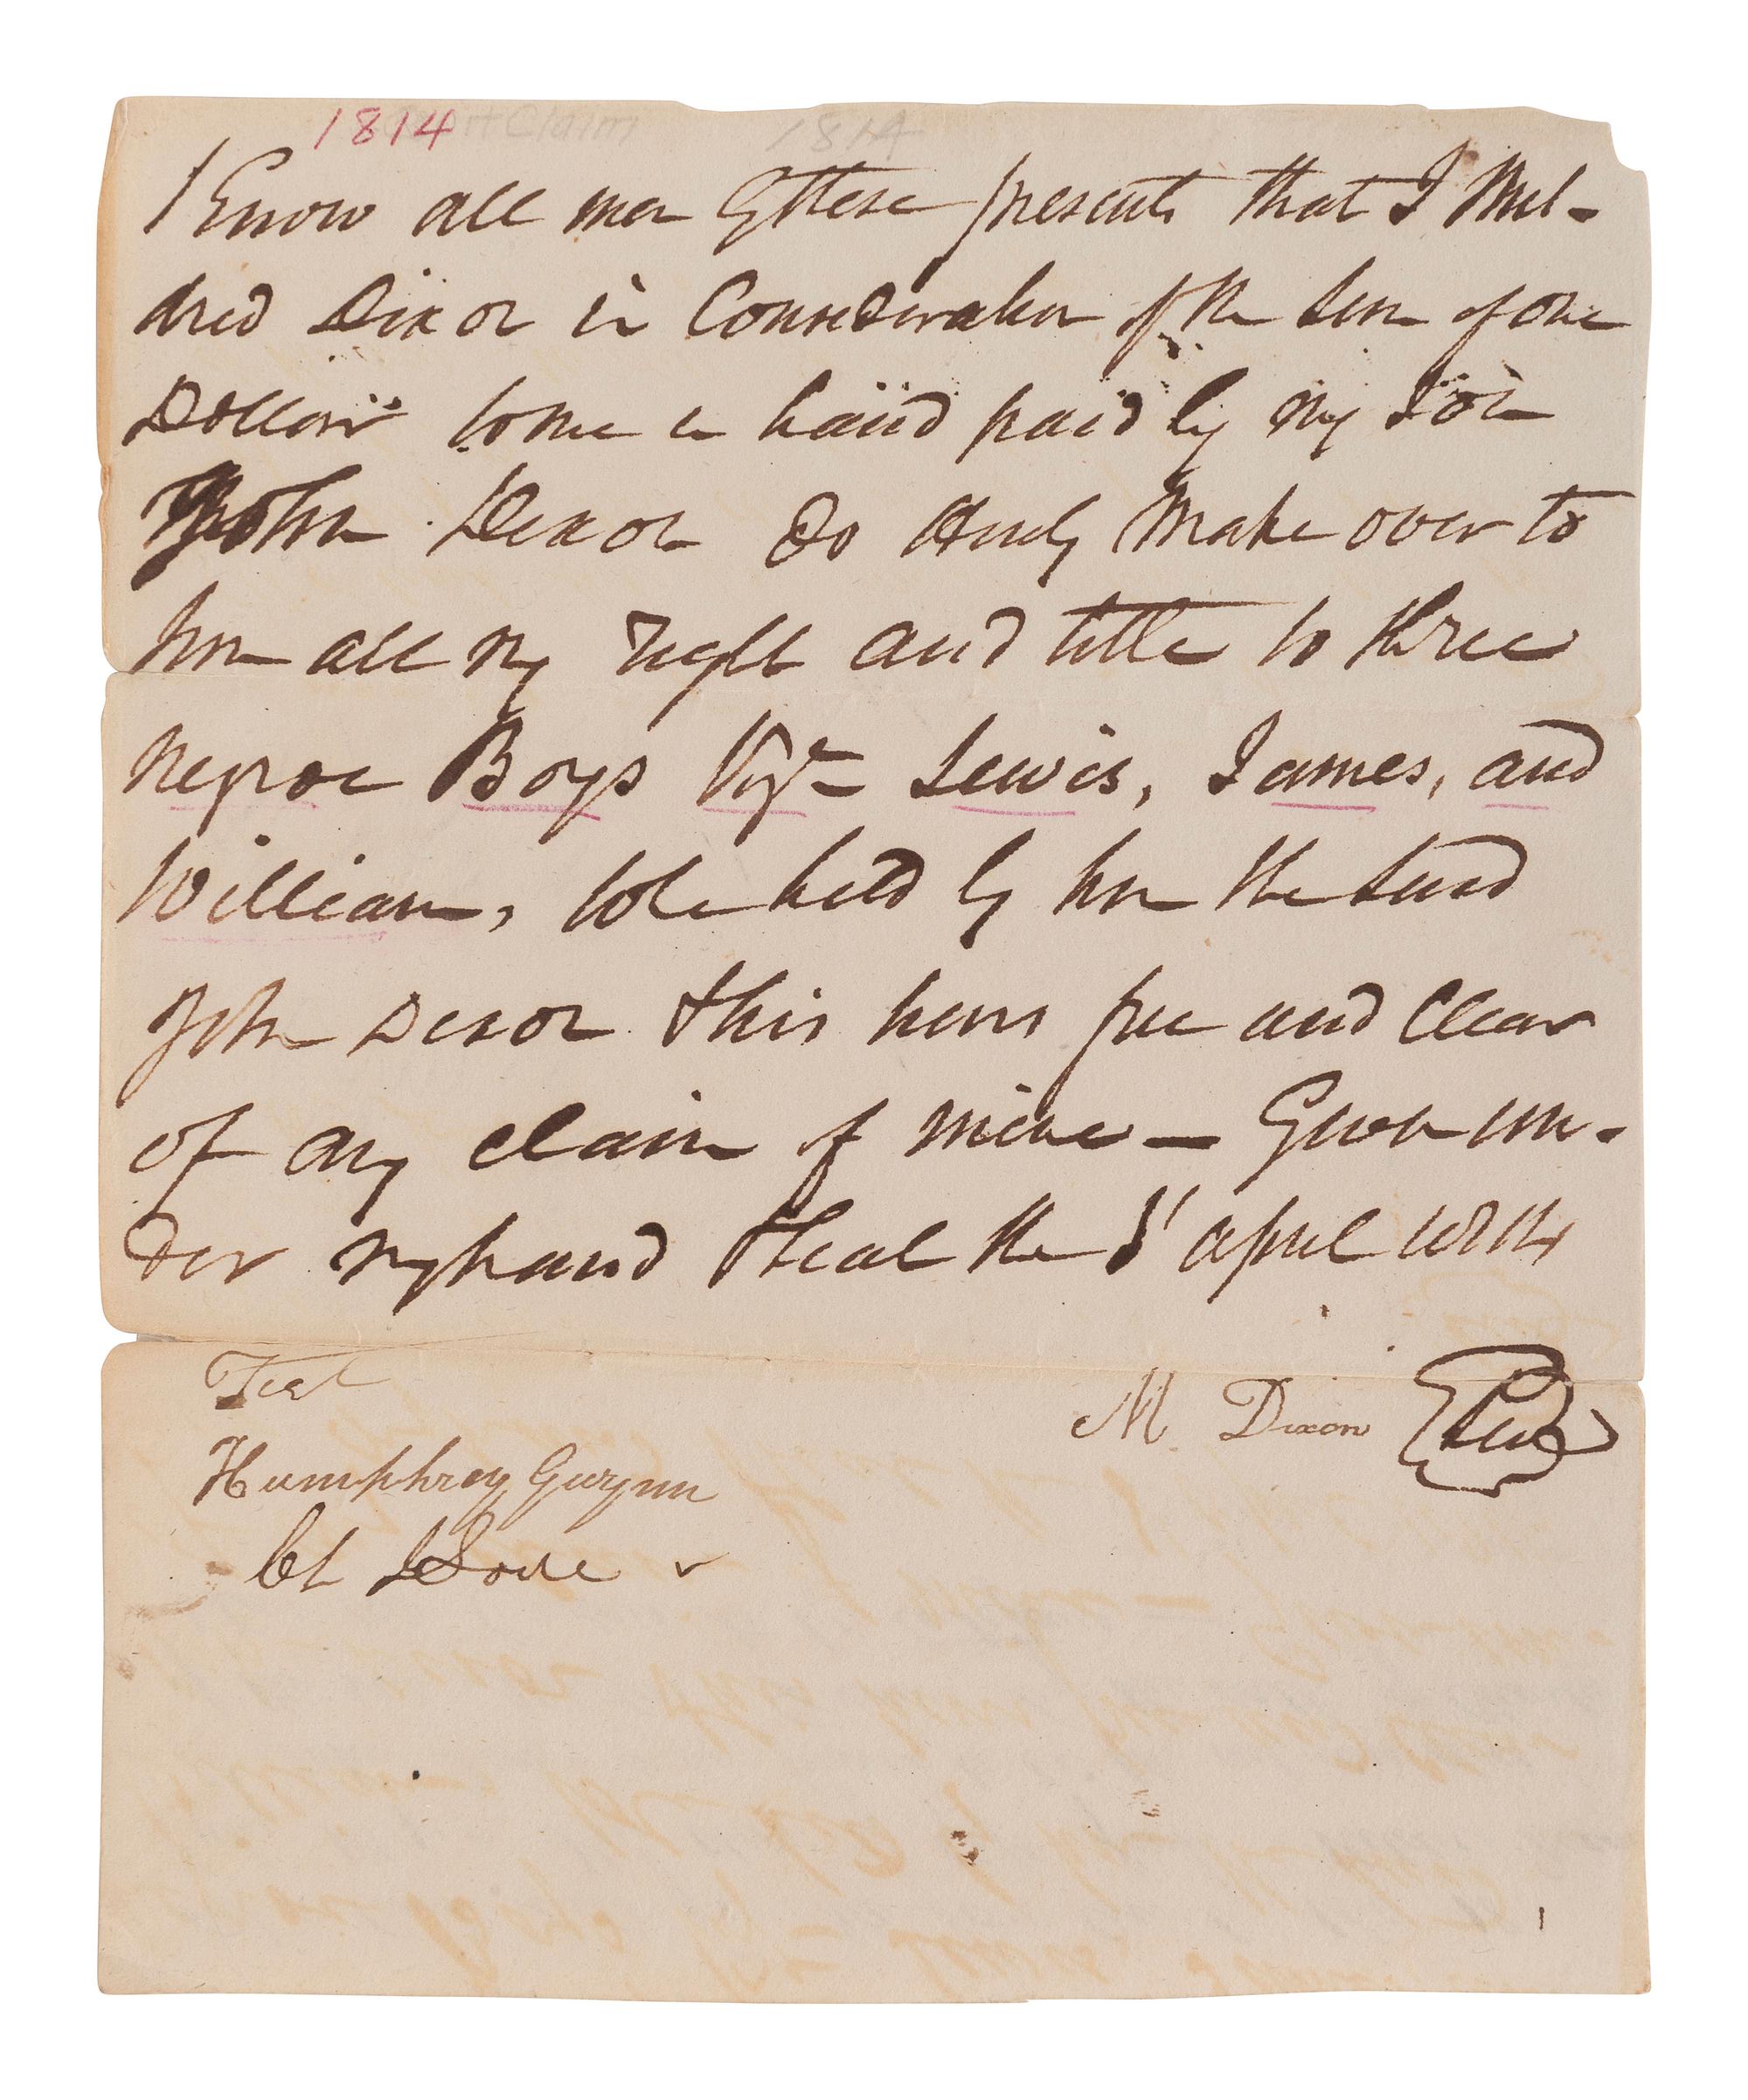 1814
Know all men by these presents that I Mil-
dred Dixon in Consideration of the sum of one
Dollar to me in hand paid by my Son
John Dixon do hereby make over to
him all my right and title to three
negroe Boys Viz Lewis, James, and
William, to be held by him the said
John Dixon & his heirs free and clear
of any claim of mine — Given un-
der my hand & seal the 5 april 1814
Test
M Dixon Seal
Humphrey Gwynn